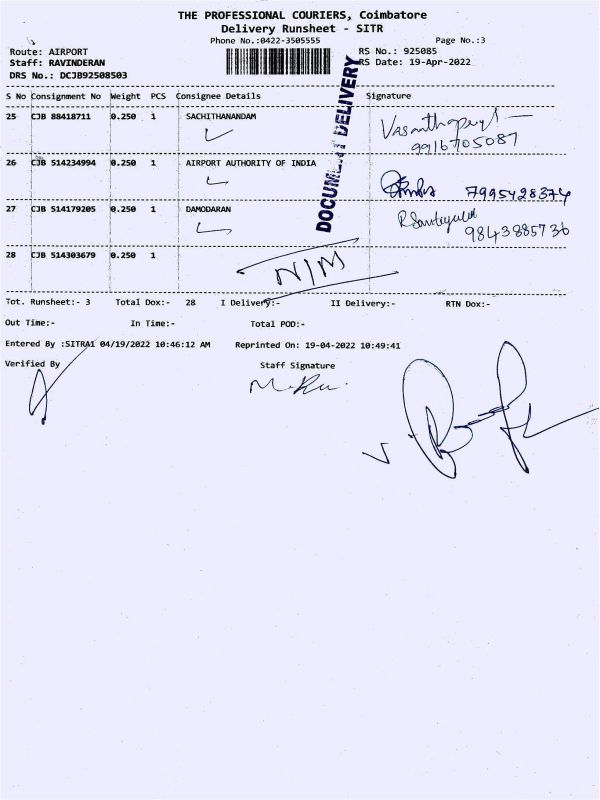 THE PROFESSIONAL COURIERS, Coimbatore
Delivery Runsheet - SITR
Phone No.:0422-3505555 Page No.:3
Route: AIRPORT RS No.: 925085
Staff: RAVINDERAN RS Date: 19-Apr-2022
DRS No.: DCJB92508503
DOCUMENT DELIVERY
S No Consignment No Weight PCS Consignee Details Signature
25 CJB 88418711 0.250 1 SACHITHANANDAM
9916705087
26 CJB 514234994 0.250 1 AIRPORT AUTHORITY OF INDIA
7995428374
27 CJB 514179205 0.250 1 DAMODARAN
9843885736
28 CJB 514303679 0.250 1 N/M
Tot. Runsheet:- 3 Total Dox:- 28 I Delivery:- II Delivery:- RTN Dox:-
Out Time:- In Time:- Total POD:-
Entered By :SITRA1 04/19/2022 10:46:12 AM Reprinted On: 19-04-2022 10:49:41
Verified By Staff Signature